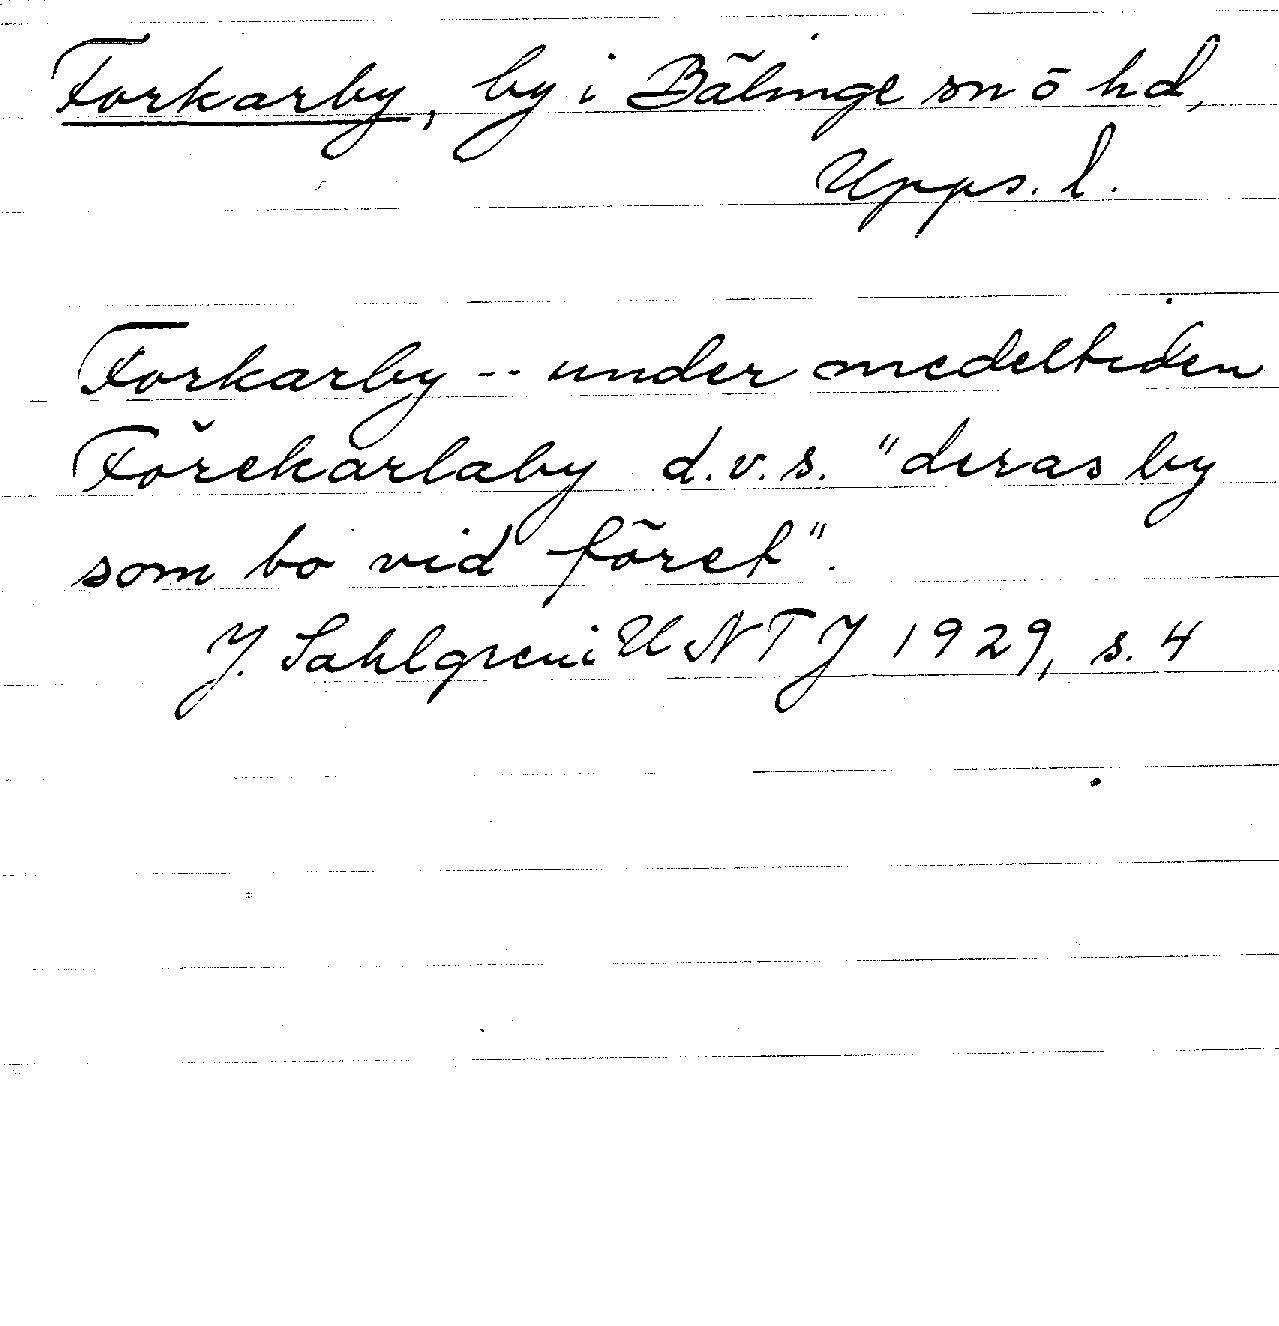 Forkarby, by i Bälinge sn o hd,
Upps. l.
Forkarby -- under medeltiden
Förekarlaby d.v.s. "deras by
som bo vid föret".
J. Sahlgren i UNTJ 1929, s. 4